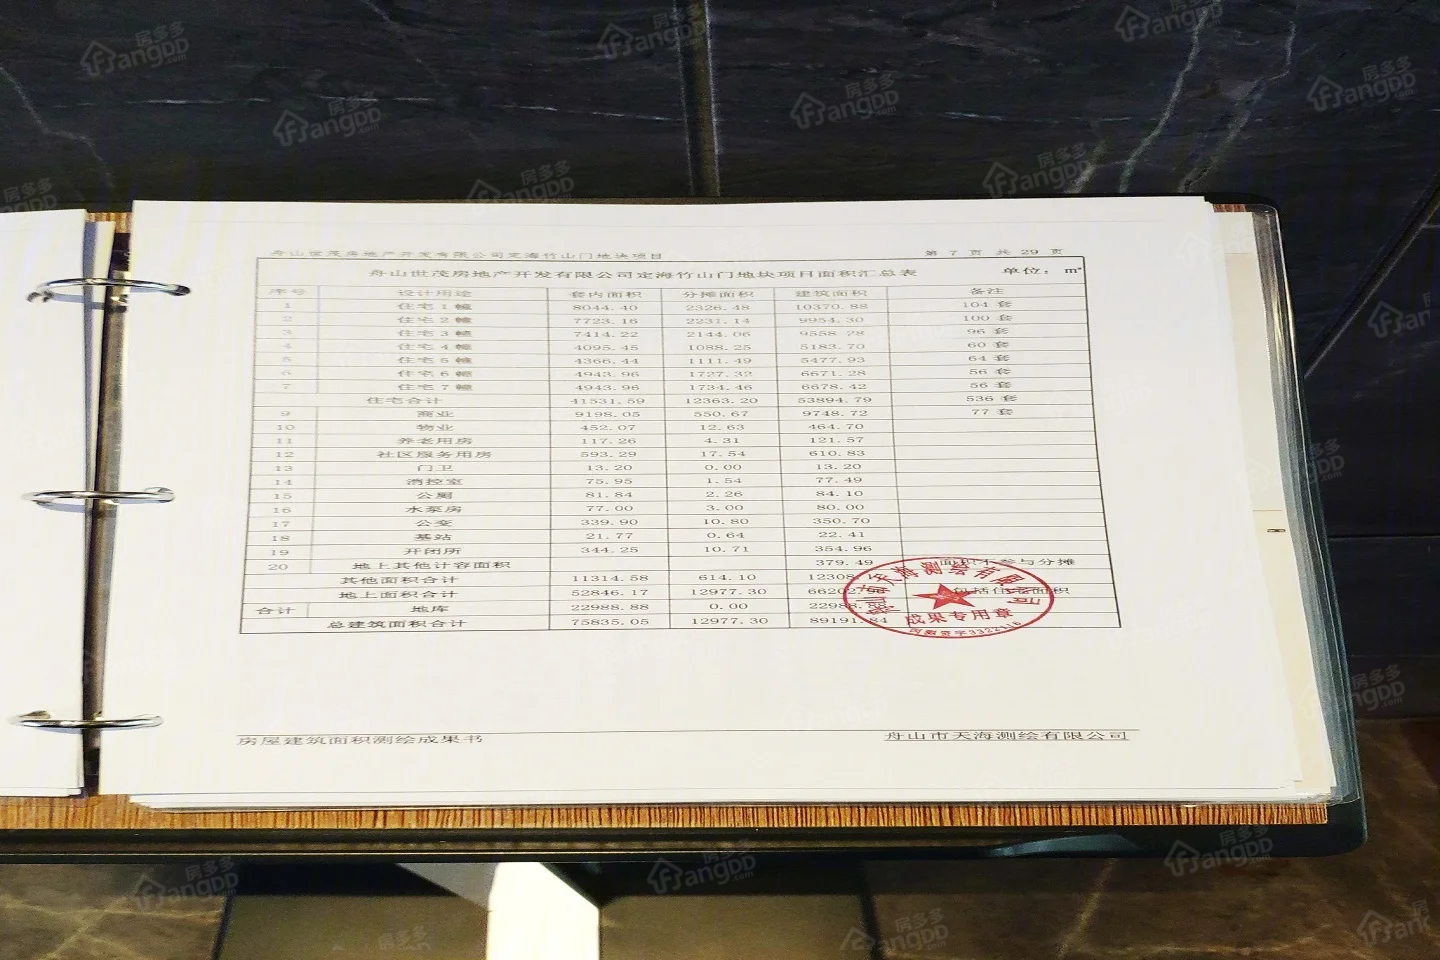 舟山世茂房地产开发有限公司定海竹山门地块项目 第 7 页 共 29 页
舟山世茂房地产开发有限公司定海竹山门地块项目面积汇总表 单位： m²
序号 设计用途 套内面积 分摊面积 建筑面积 备注
1 住宅1幢 8044.40 2326.48 10370.88 104 套
2 住宅2幢 7723.16 2231.14 9954.30 100 套
3 住宅3幢 7414.22 2144.06 9558.28 96 套
4 住宅4幢 4095.45 1088.25 5183.70 60 套
5 住宅5幢 4366.44 1111.49 5477.93 64 套
6 住宅6幢 4943.96 1727.32 6671.28 56 套
7 住宅7幢 4943.96 1734.46 6678.42 56 套
住宅合计 41531.59 12363.20 53894.79 536 套
9 商业 9198.05 550.67 9748.72 77 套
10 物业 452.07 12.63 464.70
11 养老用房 117.26 4.31 121.57
12 社区服务用房 593.29 17.54 610.83
13 门卫 13.20 0.00 13.20
14 消控室 75.95 1.54 77.49
15 公厕 81.84 2.26 84.10
16 水泵房 77.00 3.00 80.00
17 公变 339.90 10.80 350.70
18 基站 21.77 0.64 22.41
19 开闭所 344.25 10.71 354.96
20 地上其他计容面积 379.49 面积不参与分摊
其他面积合计 11314.58 614.10 12308.
地上面积合计 52846.17 12977.30 66202. 包括住宅面积
合计 地库 22988.88 0.00 22988.88
总建筑面积合计 75835.05 12977.30 89191.84
舟山市天海测绘有限公司
成果专用章
房屋建筑面积测绘成果书 舟山市天海测绘有限公司
房多多
FangDD.com